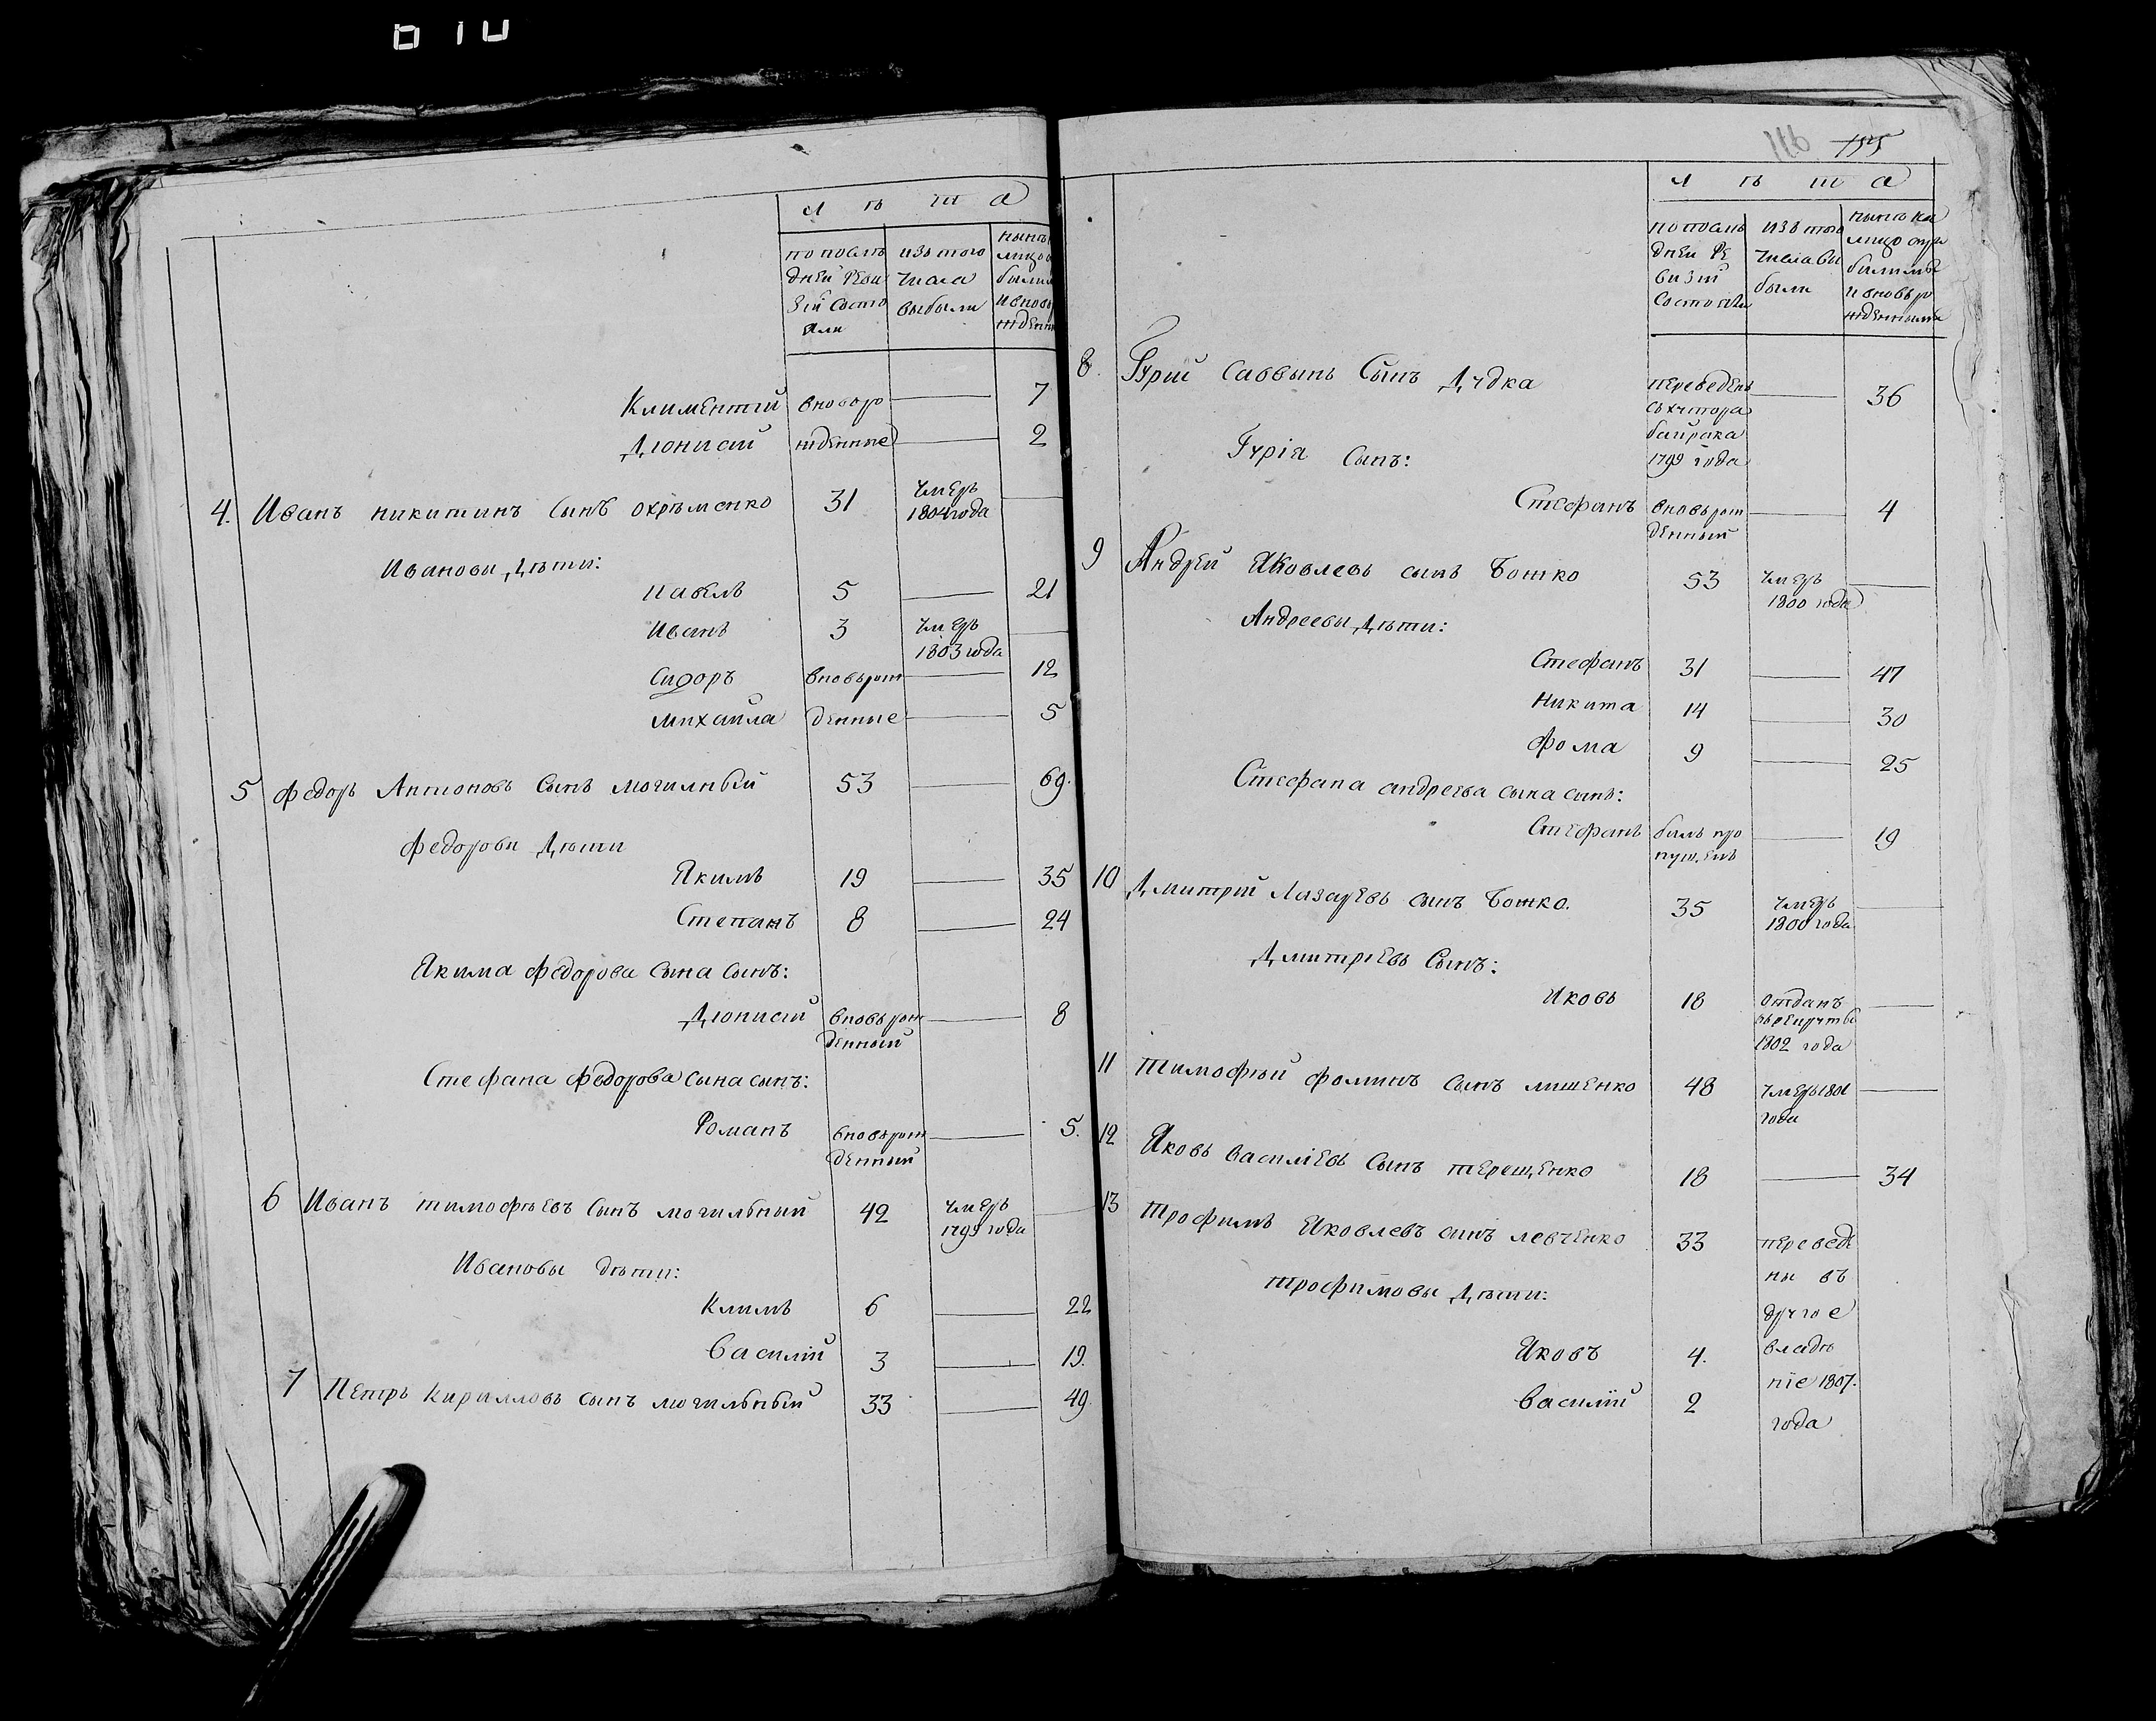 Л ѣ т а
по послѣ
дней реви
зіи состо
яли
изъ того
числа
выбыли
нынѣ
лицо
Климентій вновь ро 7
Діонисій жденные 2
4. Иванъ никитинъ сынъ охрѣменко 31 умеръ
1804 года
Ивановы дѣти:
Павелъ 5 21
Иванъ 3 умеръ
1803 года
Сидоръ вновь рож 12
Михайла денные 5
5 Федоръ Антоновъ сынъ могилный 53 69.
Федоровы дѣти
Якимъ 19 35
Степанъ 8 24
Якима Федорова сына сынъ:
Діонисій вновь рож 8
денный
Стефана Федорова сына сынъ:
Романъ вновь рож 5.
денный
6 Иванъ тимофѣевъ сынъ могильный 42 умеръ
1799 года
Ивановы дѣти:
Климъ 6 22
Василій 3 19.
7 Петръ Кирилловъ сынъ могильный 33 49
116 155
Л ѣ т а
по послѣ
дней ре
визіи
состояли
изъ того
числа вы
были
нынѣ на
лицо
8. Гурій Саввинъ Сынъ Дудка переведенъ 36
съ хутора
байрака
1799 года
Гуріа сынъ:
Стефанъ вновь рож 4
денный
9 Андрей Яковлевъ сынъ Бошко 53 умеръ
1800 года
Андреевы дѣти:
Стефанъ 31 47
Никита 14 30
Фома 9 25
Стефана андреева сына сынъ:
Стефанъ былъ про 19
пущенъ
10 Дмитрій Лазаревъ сынъ Бошко. 35 умеръ
1800 года
Дмитріевъ Сынъ:
Яковъ 18 отданъ
1802 года
11 Тимофѣй фоминъ сынъ мишенко 48 умеръ 1801
года
12 Яковъ василіевъ сынъ терещенко 18 34
13 Трофимъ Яковлевъ сынъ левченко 33 переведе
ны въ
Трофимовы дѣти:
другое
Яковъ 4. владѣ
ніе 1807.
Василій 2
года